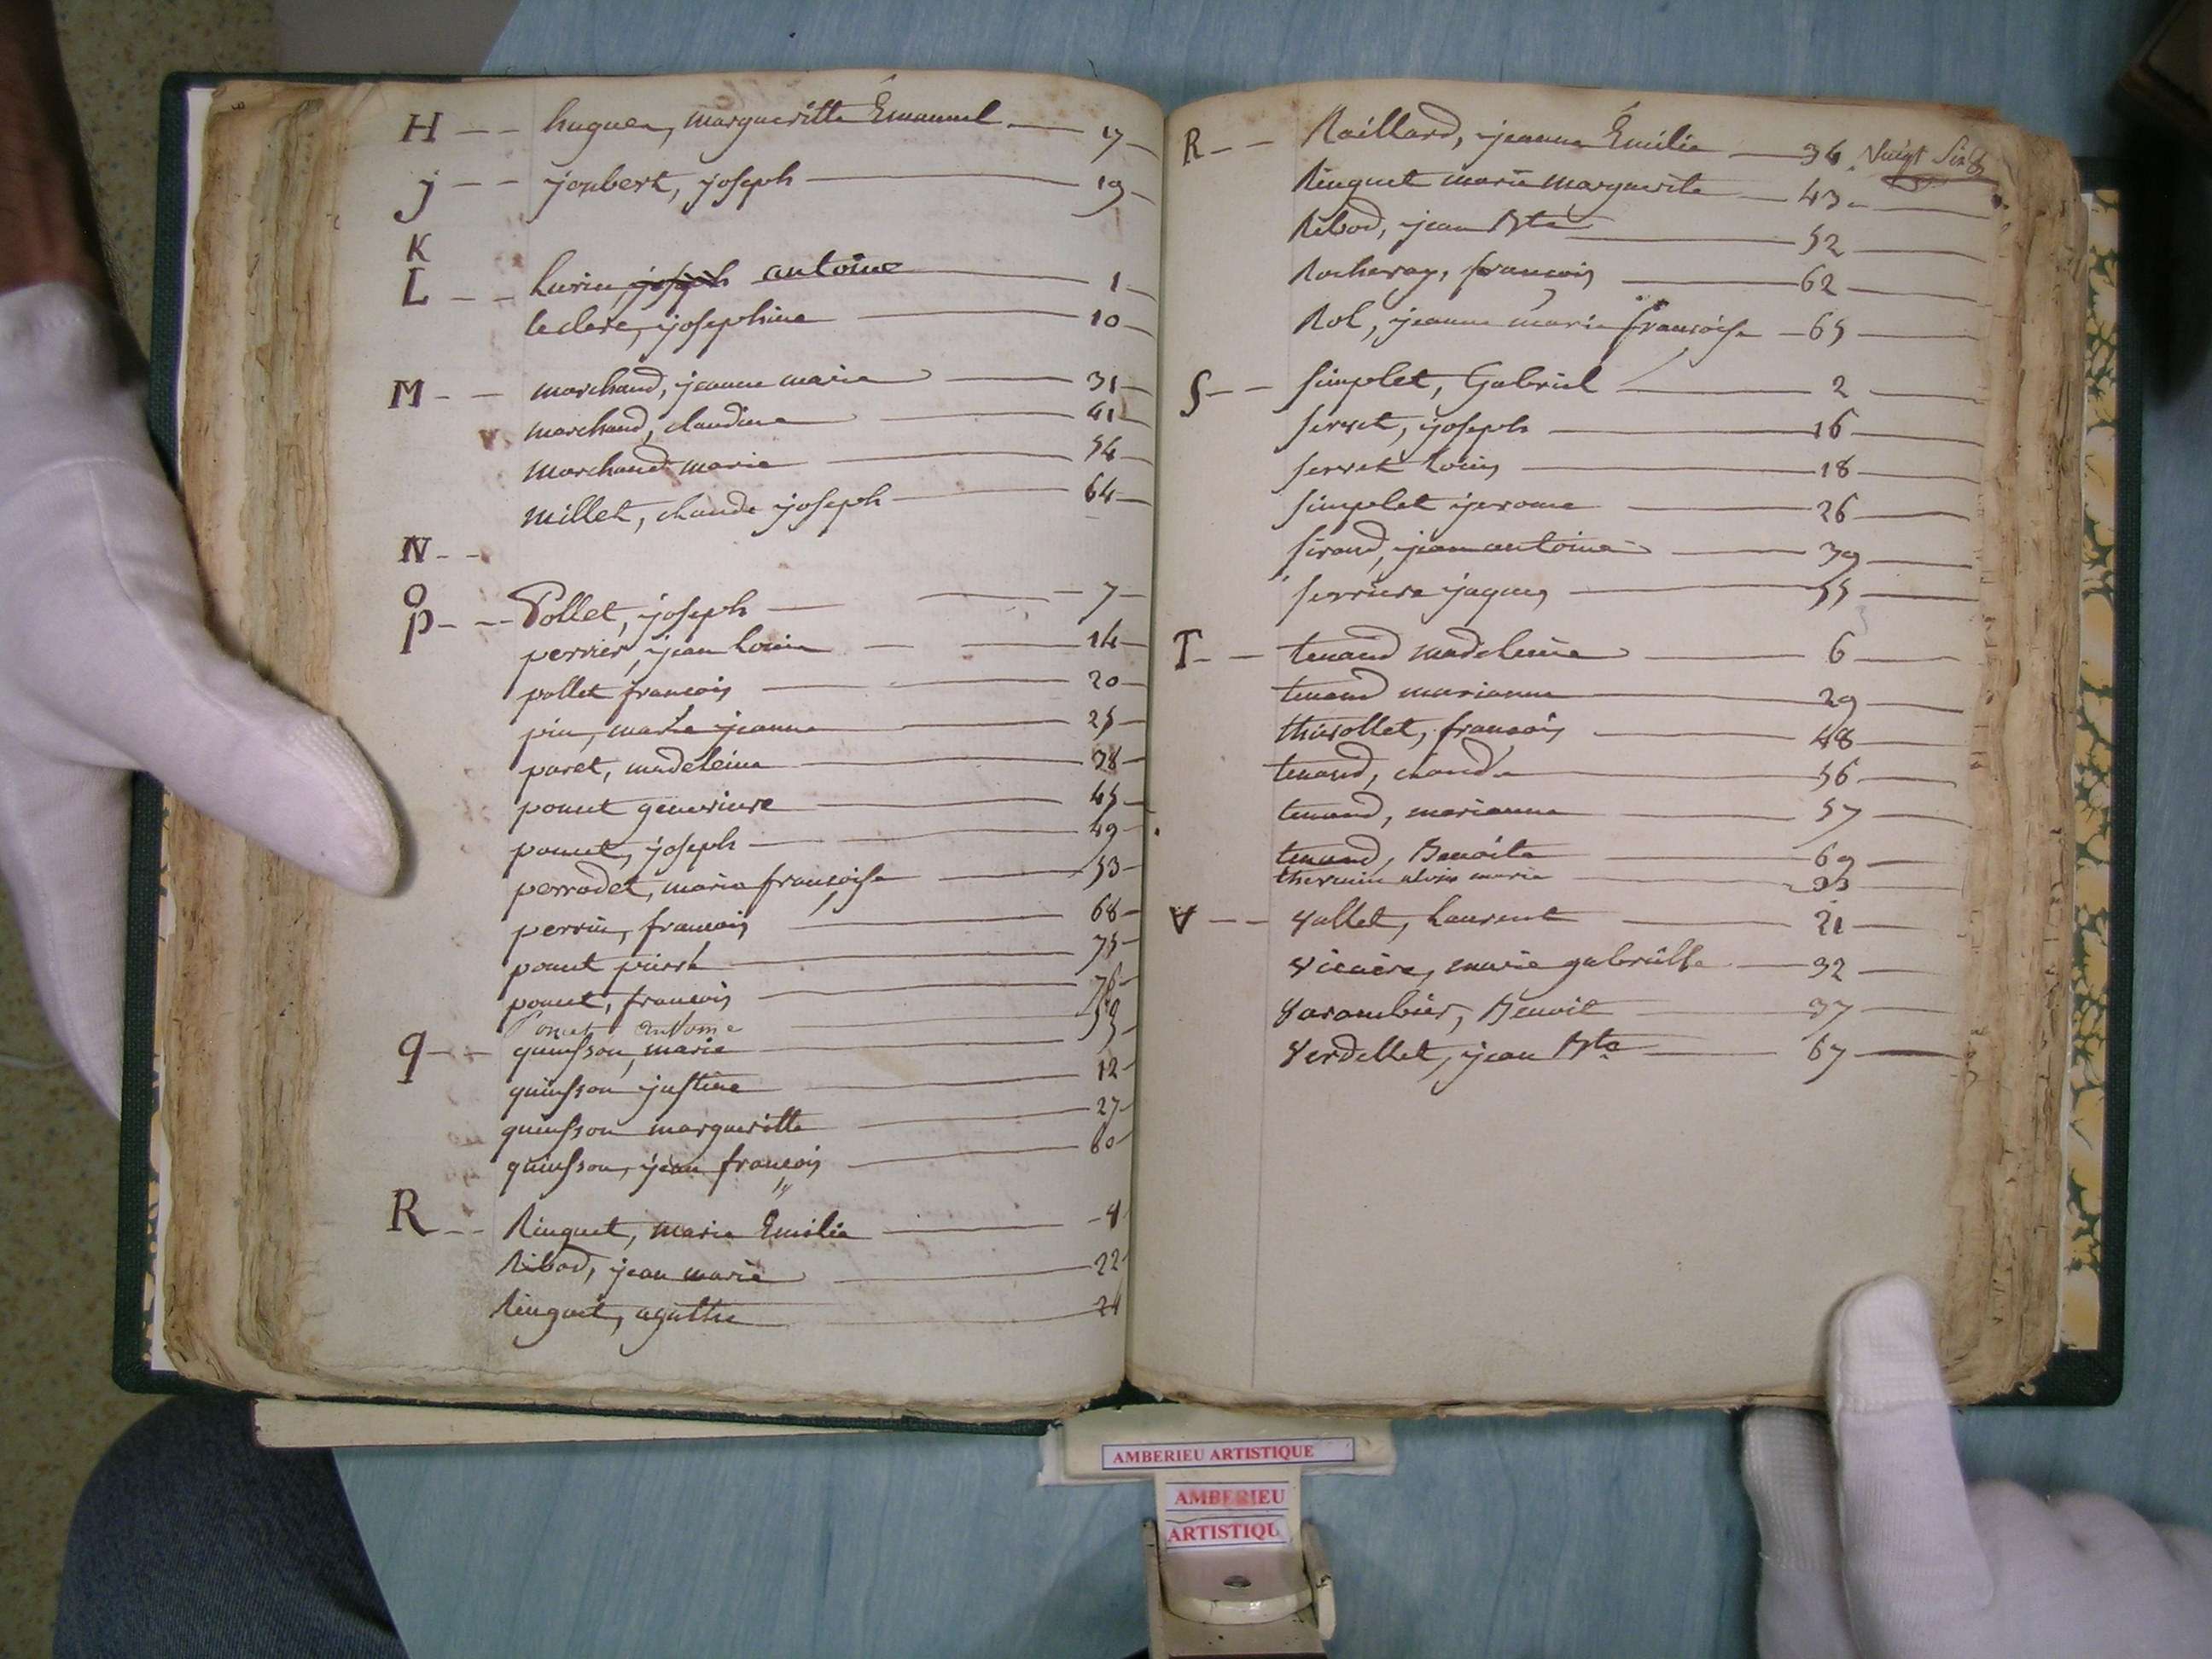 H -- hugues, margueritte Émanuel — 17
j -- joubert, joseph — 19
K
L -- joseph antoine — 1
leclerc, josephine — 10
M -- marchand, jeanne marie — 31
marchand, claudine — 41
marchand marie — 54
Millet, claude joseph — 64
N --
O
P -- Pollet, joseph — 7
perrier, jean Louis — 14
pollet françois — 20
pin, marie jeanne — 25
paret, madeleine — 38
ponut genevieve — 45
ponut, joseph — 49
perrodet, marie françoise — 53
perrin, françois — 68
ponut pierre — 75
ponut, françois — 76
Ponut antoine
q -- quinsson, marie
quinsson justine — 12
quinsson margueritte — 27
quinsson, jean françois — 60
R -- Ringuet, marie Emilie
Ribod, jean marie — 22
Ringuet, agathe
R -- Raillard, jeanne Émilie — 34 Vingt Six
Ringuet marie marguerite — 43
Ribod, jean Bte — 52
Rocheray, françois — 62
Rol, jeanne marie françoise — 65
S -- simplet, Gabriel — 2
servet, joseph — 16
servet Louis — 18
simplet jerome — 26
sirand, jean antoine — 39
serriere jaques — 55
T -- tenand madeleine — 6
tenand marianne — 29
thivollet, françois — 48
tenand, claude — 56
tenand, marianne — 57
tenand, Benoite — 69
marie — 33
V -- vallet, Laurent — 21
vicaire, marie gabrielle — 32
varambier, Benoit — 37
verdellet, jean Bte — 67
AMBERIEU ARTISTIQUE
AMBERIEU
ARTISTIQU